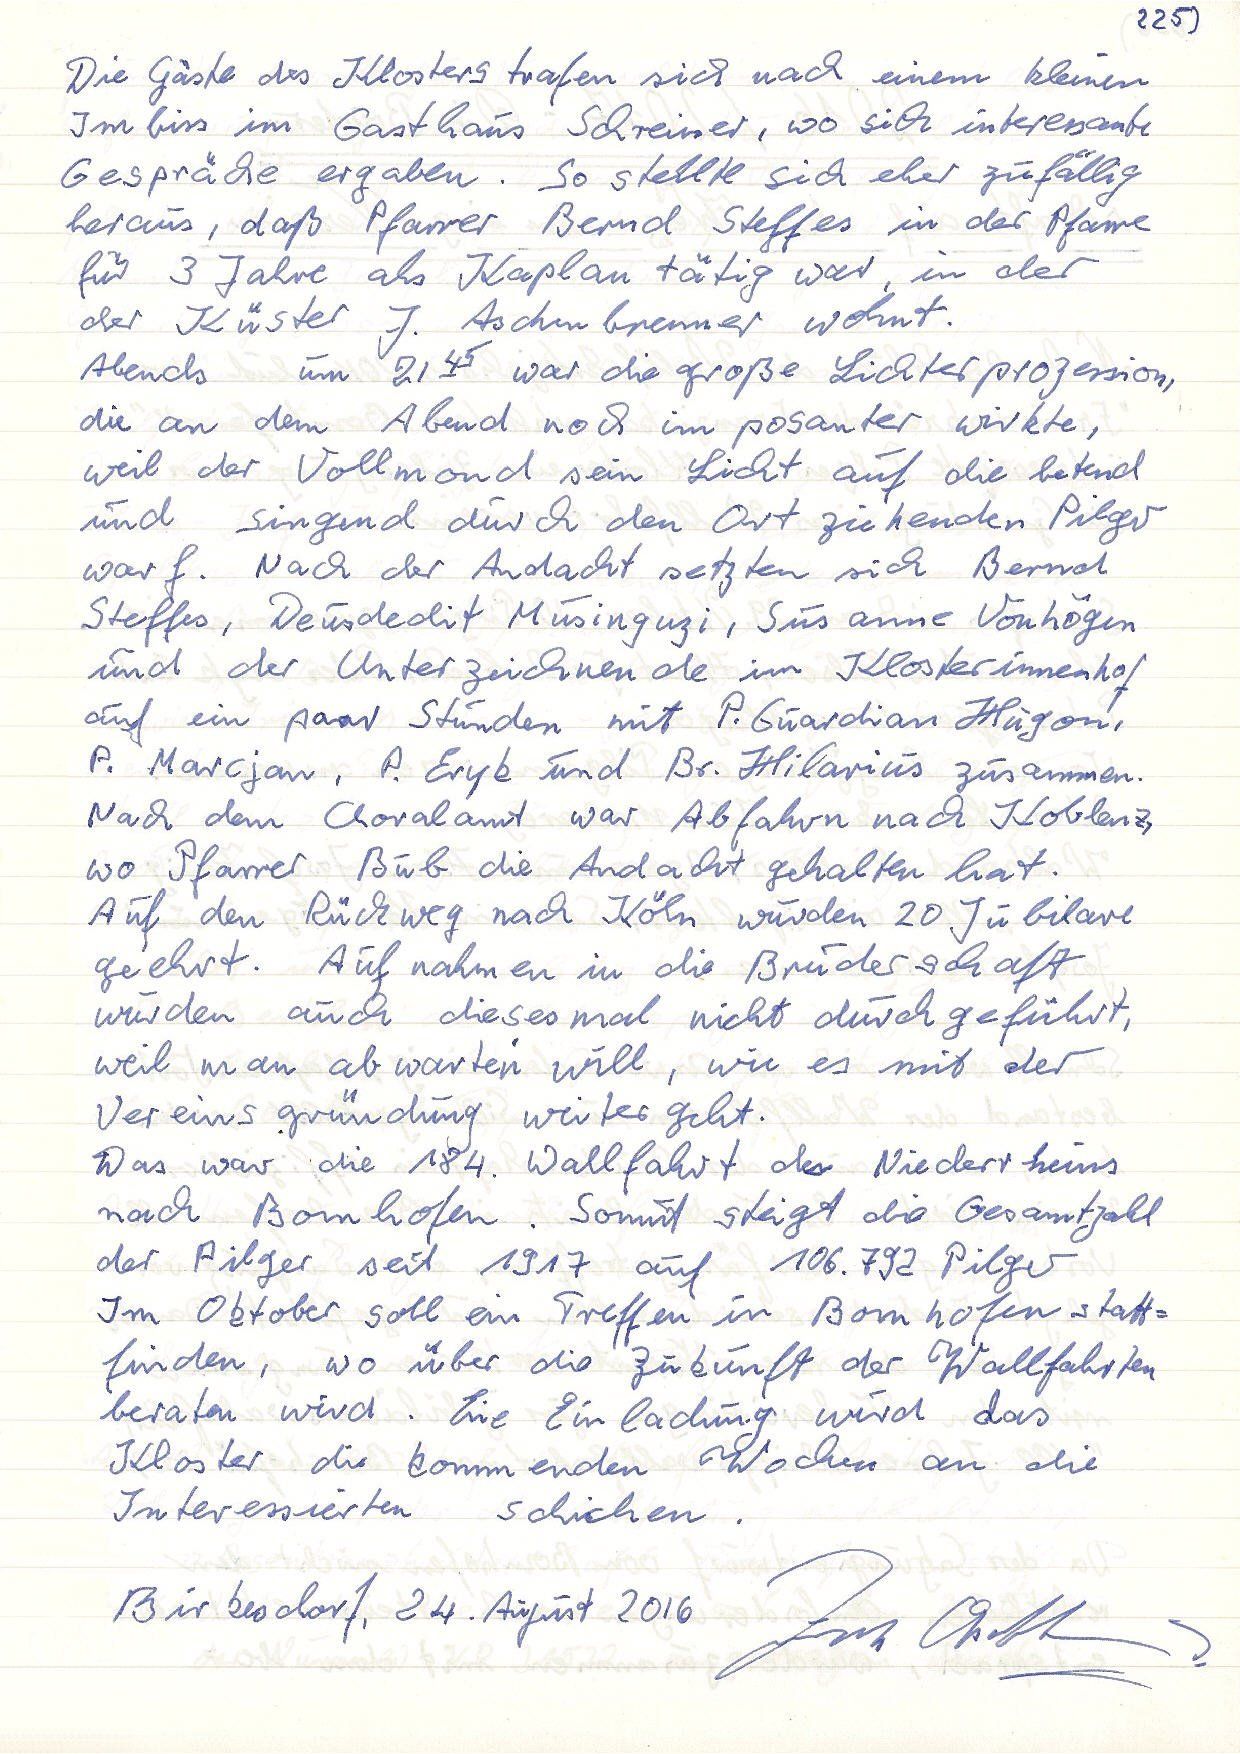 225)
Die Gäste des Klosters trafen sich nach einem kleinen
Imbiss im Gasthaus Schreiner, wo sich interessante
Gespräche ergaben. So stellte sich eher zufällig
heraus, daß Pfarrer Bernd Steffes in der Pfarre
für 3 Jahre als Kaplan tätig war, in der
der Küster J. Aschenbrenner wohnt.
Abends um 21 45 war die große Lichterprozession,
die an dem Abend noch imposanter wirkte,
weil der Vollmond sein Licht auf die betend
und singend durch den Ort ziehenden Pilger
warf. Nach der Andacht setzten sich Bernd
Steffes, Deusdedit Musinguzi, Susanne Vonhögen
und der Unterzeichnende im Klosterinnenhof
auf ein paar Stunden mit P. Guardian Hugon,
P. Marcjan, P. Eryk und Br. Hilarius zusammen.
Nach dem Choralamt war Abfahrn nach Koblenz,
wo Pfarrer Bub die Andacht gehalten hat.
Auf den Rückweg nach Köln wurden 20 Jubilare
geehrt. Aufnahmen in die Bruderschaft
wurden auch diesesmal nicht durchgeführt,
weil man abwarten will, wie es mit der
Vereinsgründung weitergeht.
Das war die 184. Wallfahrt des Niederrheins
nach Bornhofen. Somit steigt die Gesamtzahl
der Pilger seit 1917 auf 106.792 Pilger
Im Oktober soll ein Treffen in Bornhofen statt=
finden, wo über die Zukunft der Wallfahrten
beraten wird. Eine Einladung wird das
Kloster die kommenden Wochen an die
Interessierten schicken.
Birkesdorf, 24. August 2016